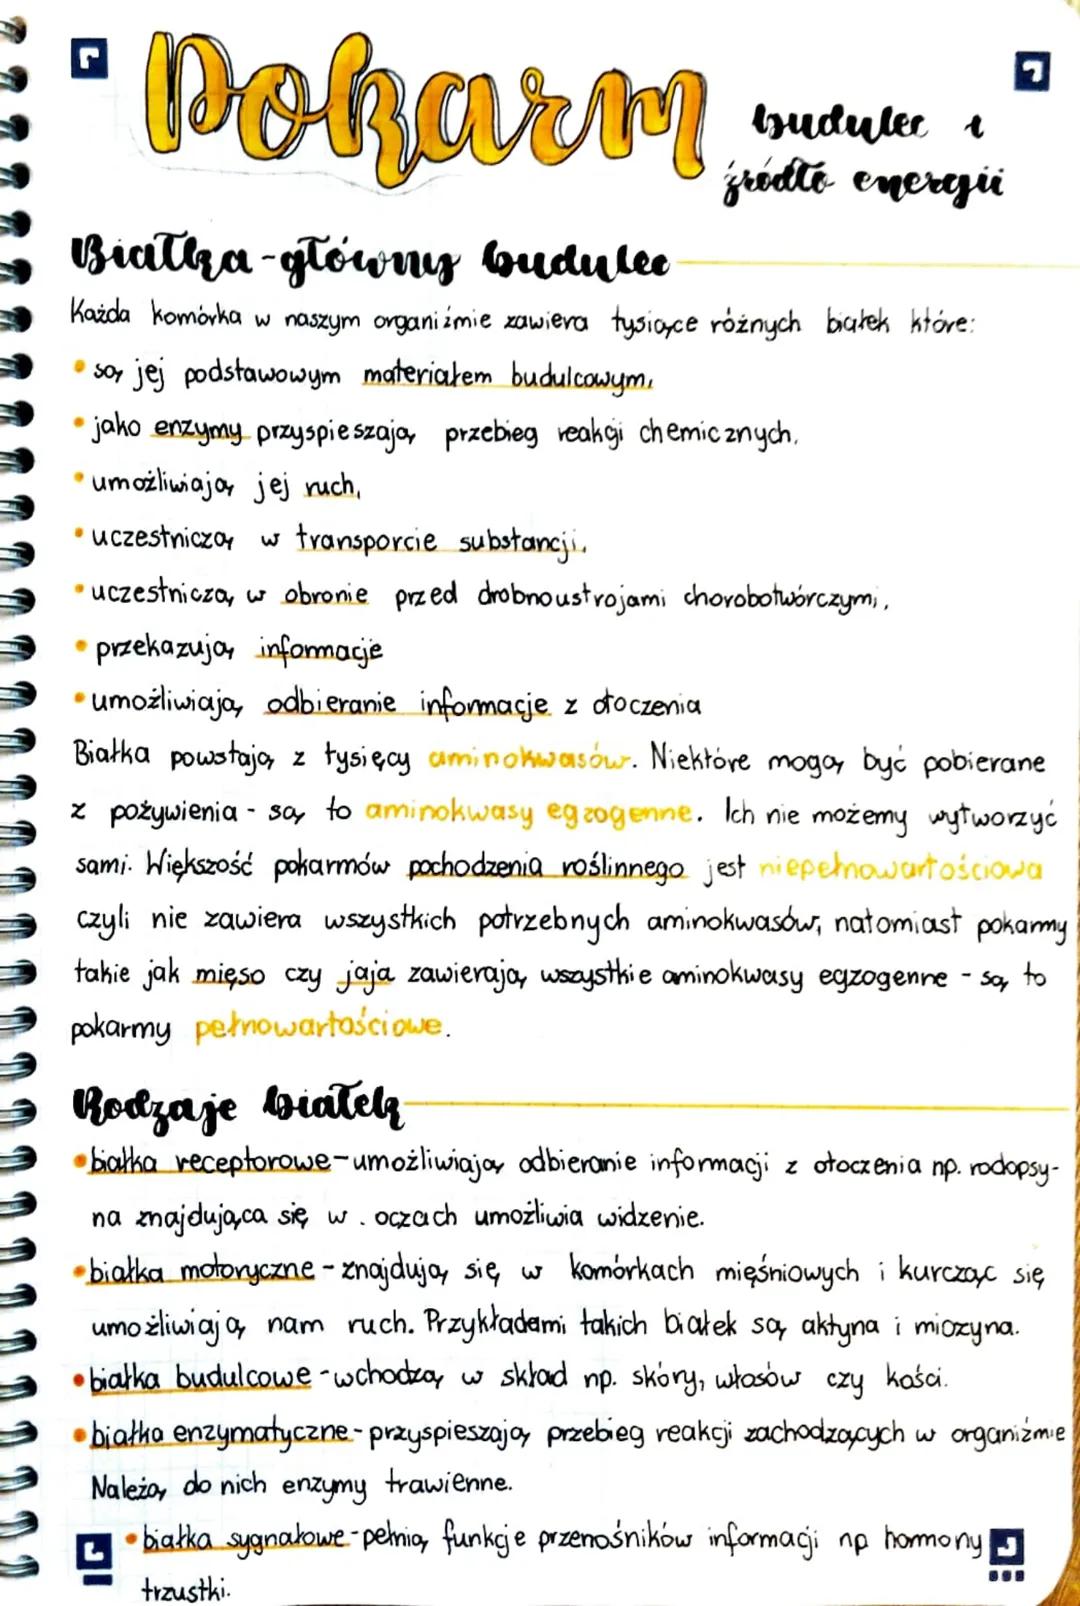 Pokarm
budulec i
źródło energii
Białka - główny budulec
Każda komórka w naszym organiźmie zawiera tysiące różnych białek które:
• są jej podstawowym materiałem budulcowym,
• jako enzymy przyspieszają przebieg reakcji chemicznych,
• umożliwiają jej ruch,
• uczestniczą w transporcie substancji,
• uczestniczą w obronie przed drobnoustrojami chorobotwórczymi,
• przekazują informacje
• umożliwiają odbieranie informacje z otoczenia
Białka powstają z tysięcy aminokwasów. Niektóre mogą być pobierane
z pożywienia - są to aminokwasy egzogenne. Ich nie możemy wytworzyć
sami. Większość pokarmów pochodzenia roślinnego jest niepełnowartościowa
czyli nie zawiera wszystkich potrzebnych aminokwasów, natomiast pokarmy
takie jak mięso czy jaja zawierają wszystkie aminokwasy egzogenne - są to
pokarmy pełnowartościowe.
Rodzaje białek
• białka receptorowe - umożliwiają odbieranie informacji z otoczenia np. rodopsy-
na znajdująca się w . oczach umożliwia widzenie.
• białka motoryczne - znajdują się w komórkach mięśniowych i kurcząc się
umożliwiają nam ruch. Przykładami takich białek są aktyna i miozyna.
• białka budulcowe - wchodzą w skład np. skóry, włosów czy kości.
• białka enzymatyczne - przyspieszają przebieg reakcji zachodzących w organiźmie
Należą do nich enzymy trawienne.
• białka sygnałowe - pełnią funkcje przenośników informacji np hormony
trzustki.